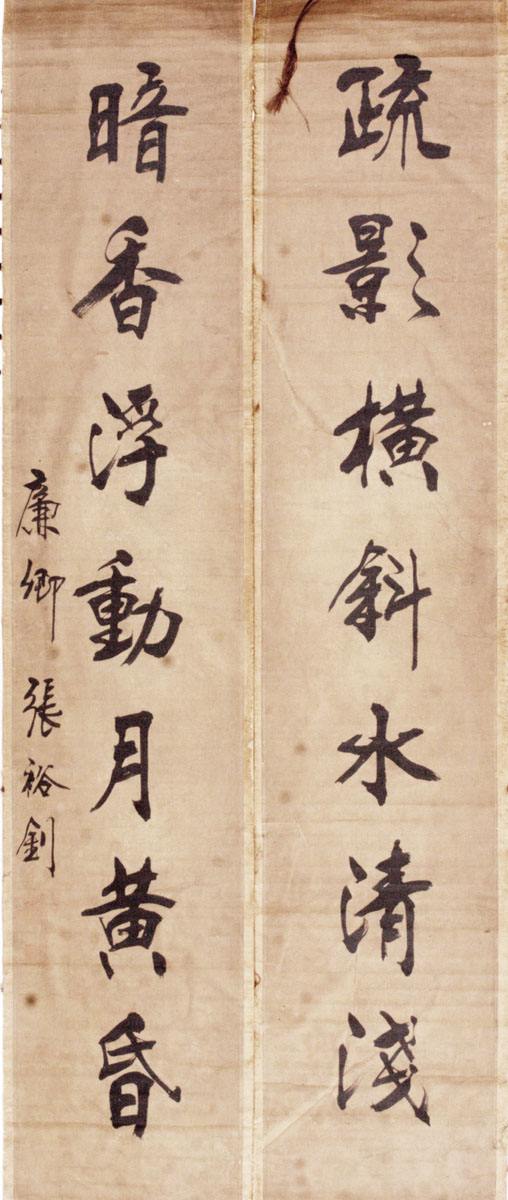 疏影橫斜水清淺
暗香浮動月黃昏
廉卿張裕釗